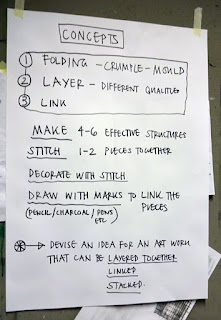 CONCEPTS
① FOLDING - CRUMPLE - MOULD
② LAYER - DIFFERENT QUALITIES
③ LINK
MAKE 4-6 EFFECTIVE STRUCTURES
STITCH 1-2 PIECES TOGETHER
DECORATE WITH STITCH
DRAW WITH MARKS TO LINK THE
(PENCIL/CHARCOAL/PENS PIECES
ETC)
✱→ DEVISE AN IDEA FOR AN ART WORK
THAT CAN BE LAYERED TOGETHER
LINKED
STACKED.